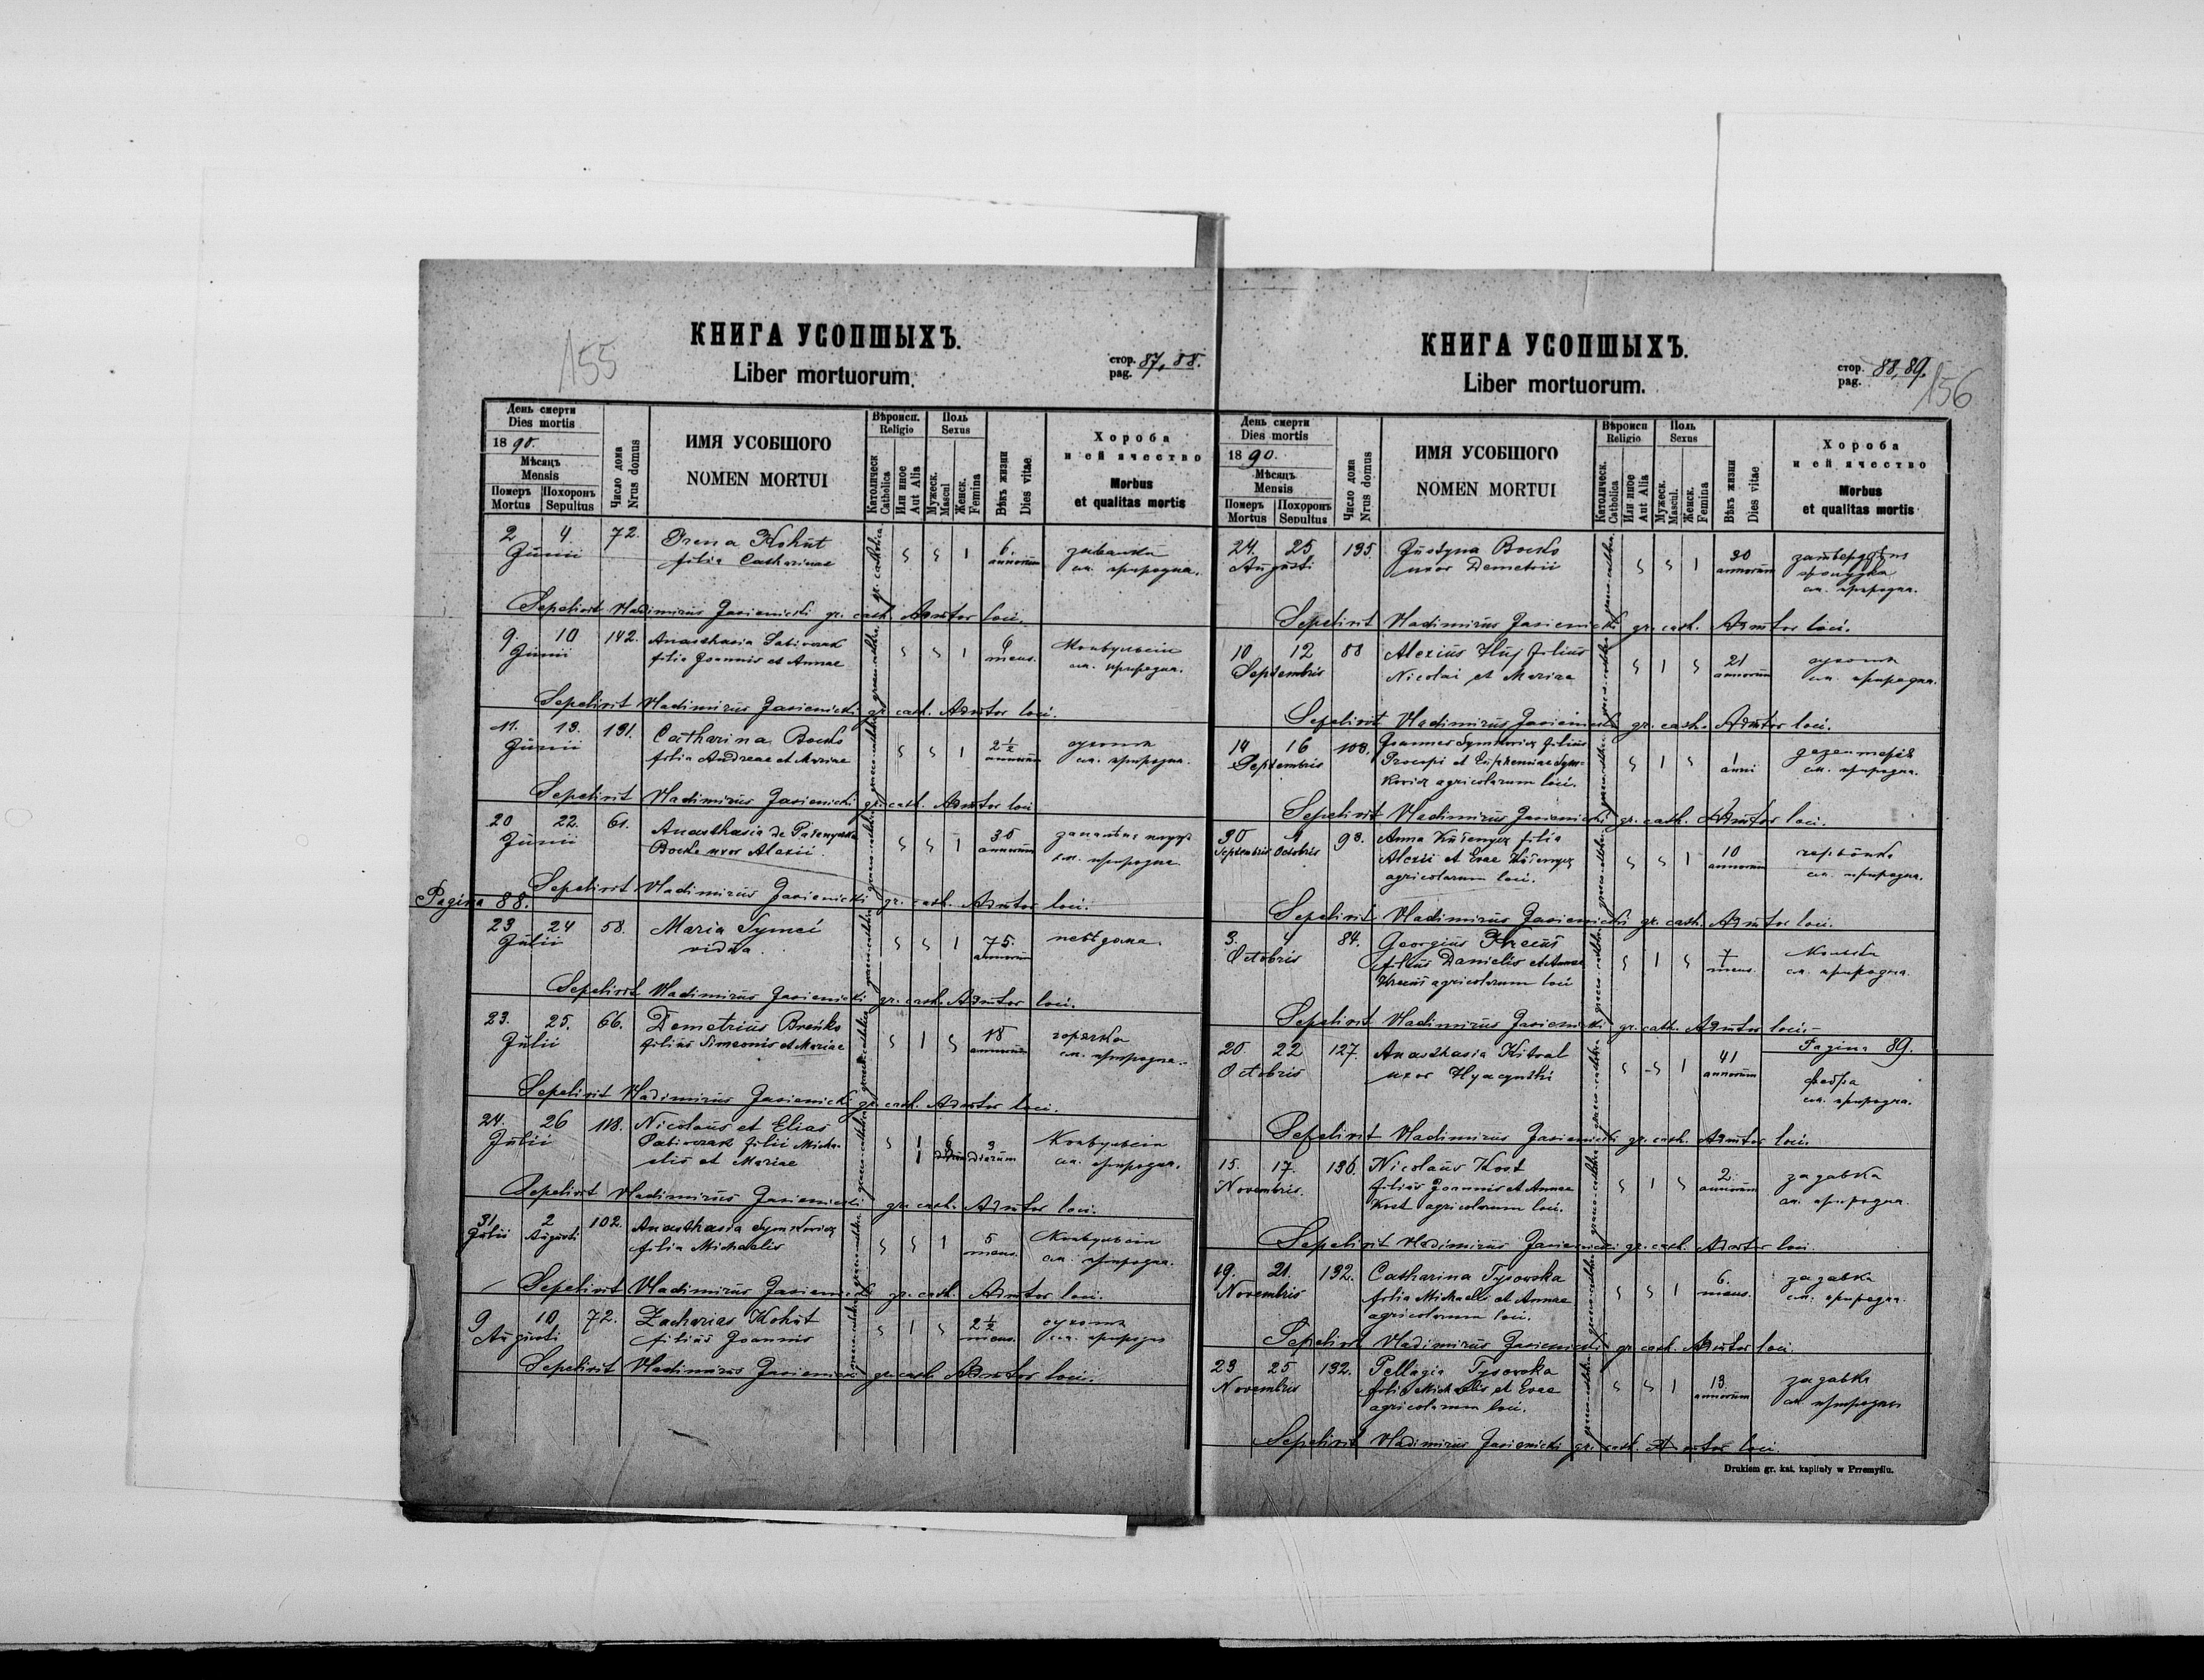 155
КНИГА УСОПШЫХЪ.
Liber mortuorum.
стор. pag. 87, 88.
День смерти
Dies mortis
1890.
Мѣсяць
Mensis
Померъ Mortus
Похоронъ Sepultus
Число дома
Nrus domus
ИМЯ УСОБШОГО
NOMEN MORTUI
Вѣроисп.
Religio
Католическ
Catholica
Или иное
Aut Alia
Поль
Sexus
Мужеск.
Mascul
Женск.
Femina
Вѣкъ жизни
Dies vitae
Хороба
и ей ячество
Morbus
et qualitas mortis
2 4. 72. Irena Kohut 1 6.
Junii filia Catharinae annorum см. природна.
Sepelivit Vladimirus Jasienicki gr. cath. Admtor loci.
9. 10 142. Anasthasia 1 6 Конвульсіи
Junii filia Joannis et Annae mens. см. природна.
Sepelivit Vladimirus Jasienicki gr. cath. Admtor loci.
11. 13. 131. Catharina Bocko 1 2½ сухоти
Junii filia Andreae et Mariae annorum см. природна.
Sepelivit Vladimirus Jasienicki gr. cath. Admtor loci
20 22. 61. Anasthasia de 1 30
Junii Bocko uxor Alexii. annorum см. природна
Sepelivit Vladimirus Jasienicki gr. cath. Admtor loci.
Pagina 88.
23 24 58. Maria Symci 1 75. невѣдома.
Julii vidua. annorum
Sepelivit Vladimirus Jasienicki gr. cath. Admtor loci.
23. 25. 66. Demetrius Breńko 1 18 горячка
Julii filius Simeonis et Mariae annorum см. природна.
Sepelivit Vladimirus Jasienicki gr. cath. Admtor loci.
24. 26 118. Nicolaus et Elias 1 3 Конвульсіи
Julii filii Micha- 1 dierum см. природна.
elis et Mariae
Sepelivit Vladimirus Jasienicki gr. cath. Admtor loci.
31 2 102. Anasthasia Symkowicz 1 5 Конвульсіи
Julii Augusti filia Michaelis mens. см. природна.
Sepelivit Vladimirus Jasienicki gr. cath. Admtor loci.
9 10. 72. Zacharias Kohut 1 2½ сухоти
Augusti filius Joannis mens. см. природна
Sepelivit Vladimirus Jasienicki gr. cath. Admtor loci.
156
КНИГА УСОПШЫХЪ.
Liber mortuorum.
стор. pag. 88, 89.
День смерти
Dies mortis
1890.
Мѣсяць
Mensis
Померъ Mortus
Похоронъ Sepultus
Число дома
Nrus domus
ИМЯ УСОБШОГО
NOMEN MORTUI
Вѣроисп
Religio
Католическ.
Catholica
Или иное
Aut Alia
Поль
Sexus
Мужеск.
Mascul.
Женск.
Femina
Вѣкъ жизни
Dies vitae
Хороба
и ей ячество
Morbus
et qualitas mortis
24. 25 135. Justyna Bocko 1 30
Augusti uxor Demetrii annorum
см. природна.
Sepelivit Vladimirus Jasienicki gr. cath. Admtor loci.
10 12 88 Alexius Huj filius 1 21 сухоти
Septembris Nicolai et Mariae annorum см. природна.
Sepelivit Vladimirus Jasienicki gr. cath. Admtor loci.
14 16 108. Joannes Symkowicz filius 1 1 дезентерія
Septembris Procopi et Eupheminae Sym- anni см. природна.
kowicz agricolarum loci.
Sepelivit Vladimirus Jasienicki gr. cath. Admtor loci.
30 1 98. Anna filia 1 10 червонка
Septembris Octobris Alexii et Evae annorum см. природна.
agricolarum loci.
Sepelivit Vladimirus Jasienicki gr. cath. Admtor loci.
3. 4 84. Georgius Hrecuś 1 7
Octobris filius Danielis et Annae mens. см. природна.
Hrecuś agricolarum loci
Sepelivit Vladimirus Jasienicki gr. cath. Admtor loci.
Pagina 89.
20. 22 127. Anasthasia Kitral 1 41 фебра
Octobris uxor Hyacynthi annorum см. природна.
Sepelivit Vladimirus Jasienicki gr. cath. Admtor loci.
15. 17. 136. Nicolaus Kost 1 2. задавка
Novembris. filius Joannis et Annae annorum см. природна.
Kost agricolarum loci.
Sepelivit Vladimirus Jasienicki gr. cath. Admtor loci
19. 21. 132. Catharina Tysowska 1 6. задавка
Novembris filia Michaelis et Annae mens. см. природна.
agricolarum loci.
Sepelivit Vladimirus Jasienicki gr. cath. Admtor loci.
23 25 132. Pellagia Tysowska 1 13. задавка
Novembris filia Michaelis et Evae annorum см. природна
agricolarum loci.
Sepelivit Vladimirus Jasienicki gr. cath. Admtor loci.
Drukiem gr. kat. kapituły w Przemyślu.